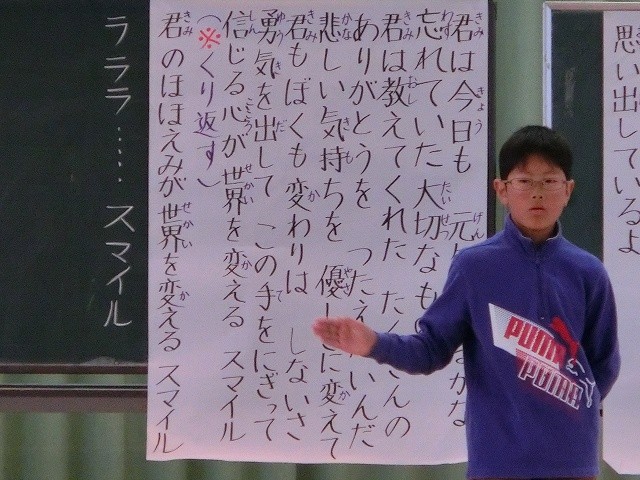 思い出しているよ
君は今日も 元 るかな
忘れていた 大切なもの
君は教えてくれた たくさんの
ありがとうを つたえ いんだ
悲しい気持ちを 優しさに変えて
君もぼくも変わりは しないさ
勇気を出して この手をにぎって
信じる心が世界を変える スマイル
(※くり返す)
君のほほえみが世界を変える スマイル
ラララ…… スマイル
PUMA
PUMA